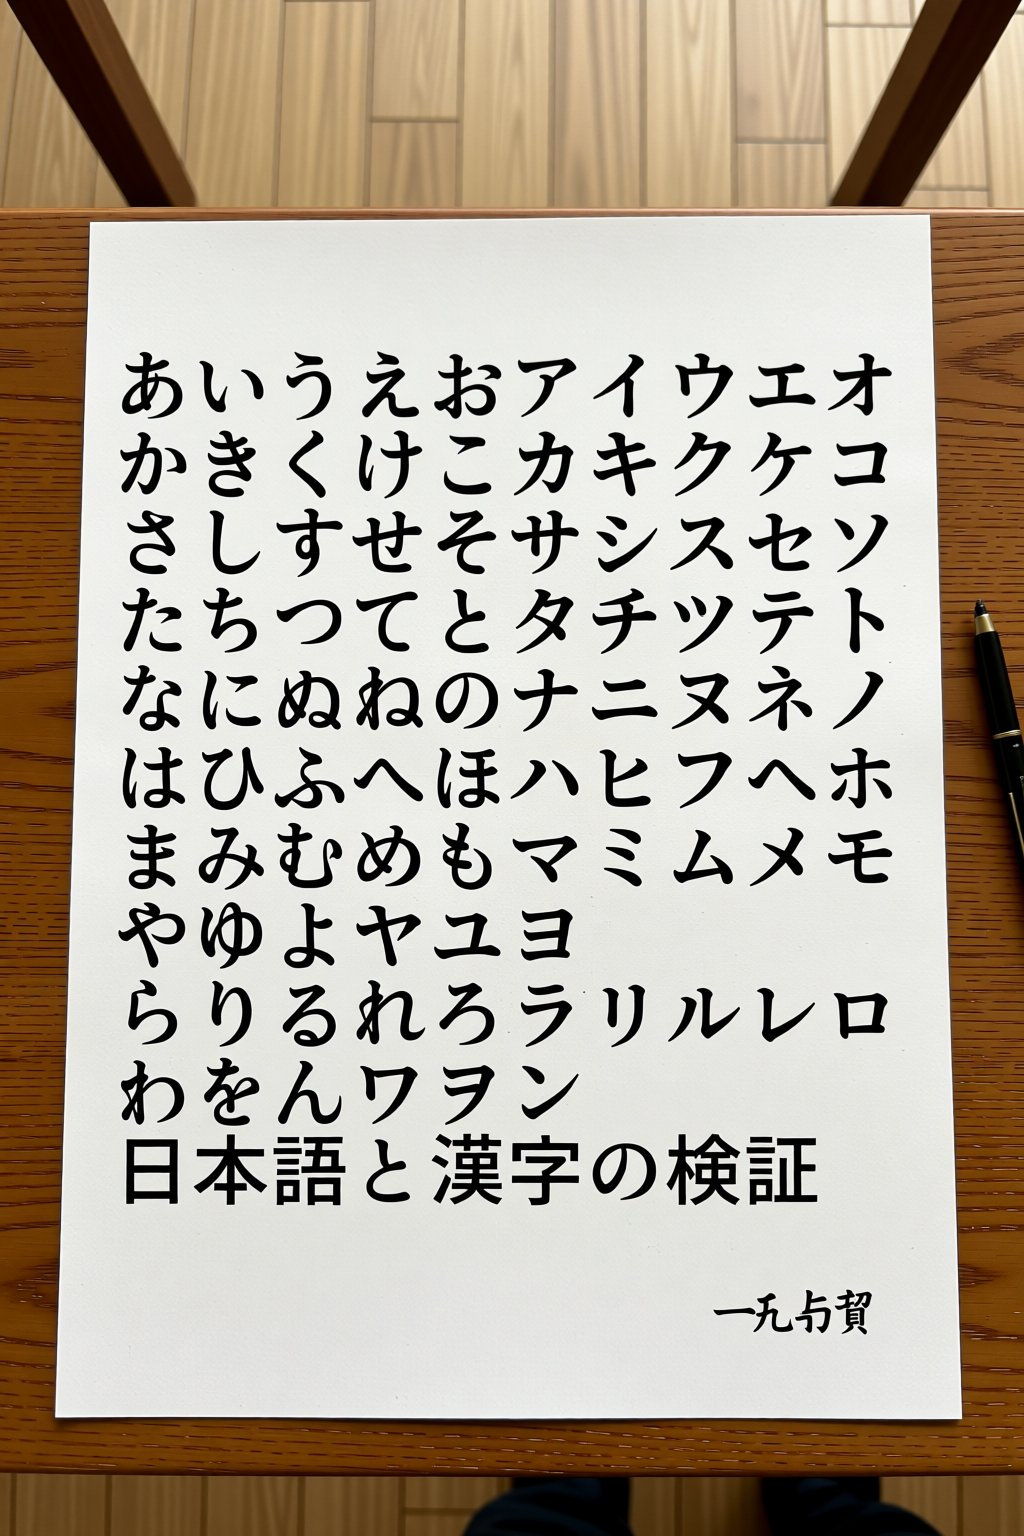 あいうえおアイウエオ
かきくけこカキクケコ
さしすせそサシスセソ
たちつてとタチツテト
なにぬねのナニヌネノ
はひふへほハヒフヘホ
まみむめもマミムメモ
やゆよヤユヨ
らりるれろラリルレロ
わをんワヲン
日本語と漢字の検証